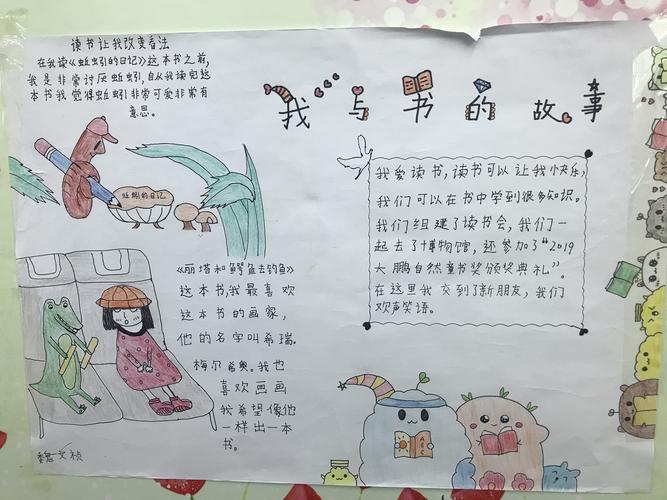 读书让我改变看法
在我读《蚯蚓的日记》这本书之前,
我是非常讨厌蚯蚓,自从我读完这
本书我觉得蚯蚓非常可爱非常有
意思。
蚯蚓的日记
我与书的故事
我爱读书,读书可以让我快乐,
我们可以在书中学到很多知识。
我们组建了读书会,我们一
起去了博物馆,还参加了“2019
大鹏自然童书奖颁奖典礼”。
在这里我交到了新朋友,我们
欢声笑语。
《丽塔和鳄鱼去钓鱼》
这本书,我最喜欢
这本书的画家,
他的名字叫希瑞.
梅尔希奥。我也
喜欢画画
我希望像他
一样出一本
书。
ABC